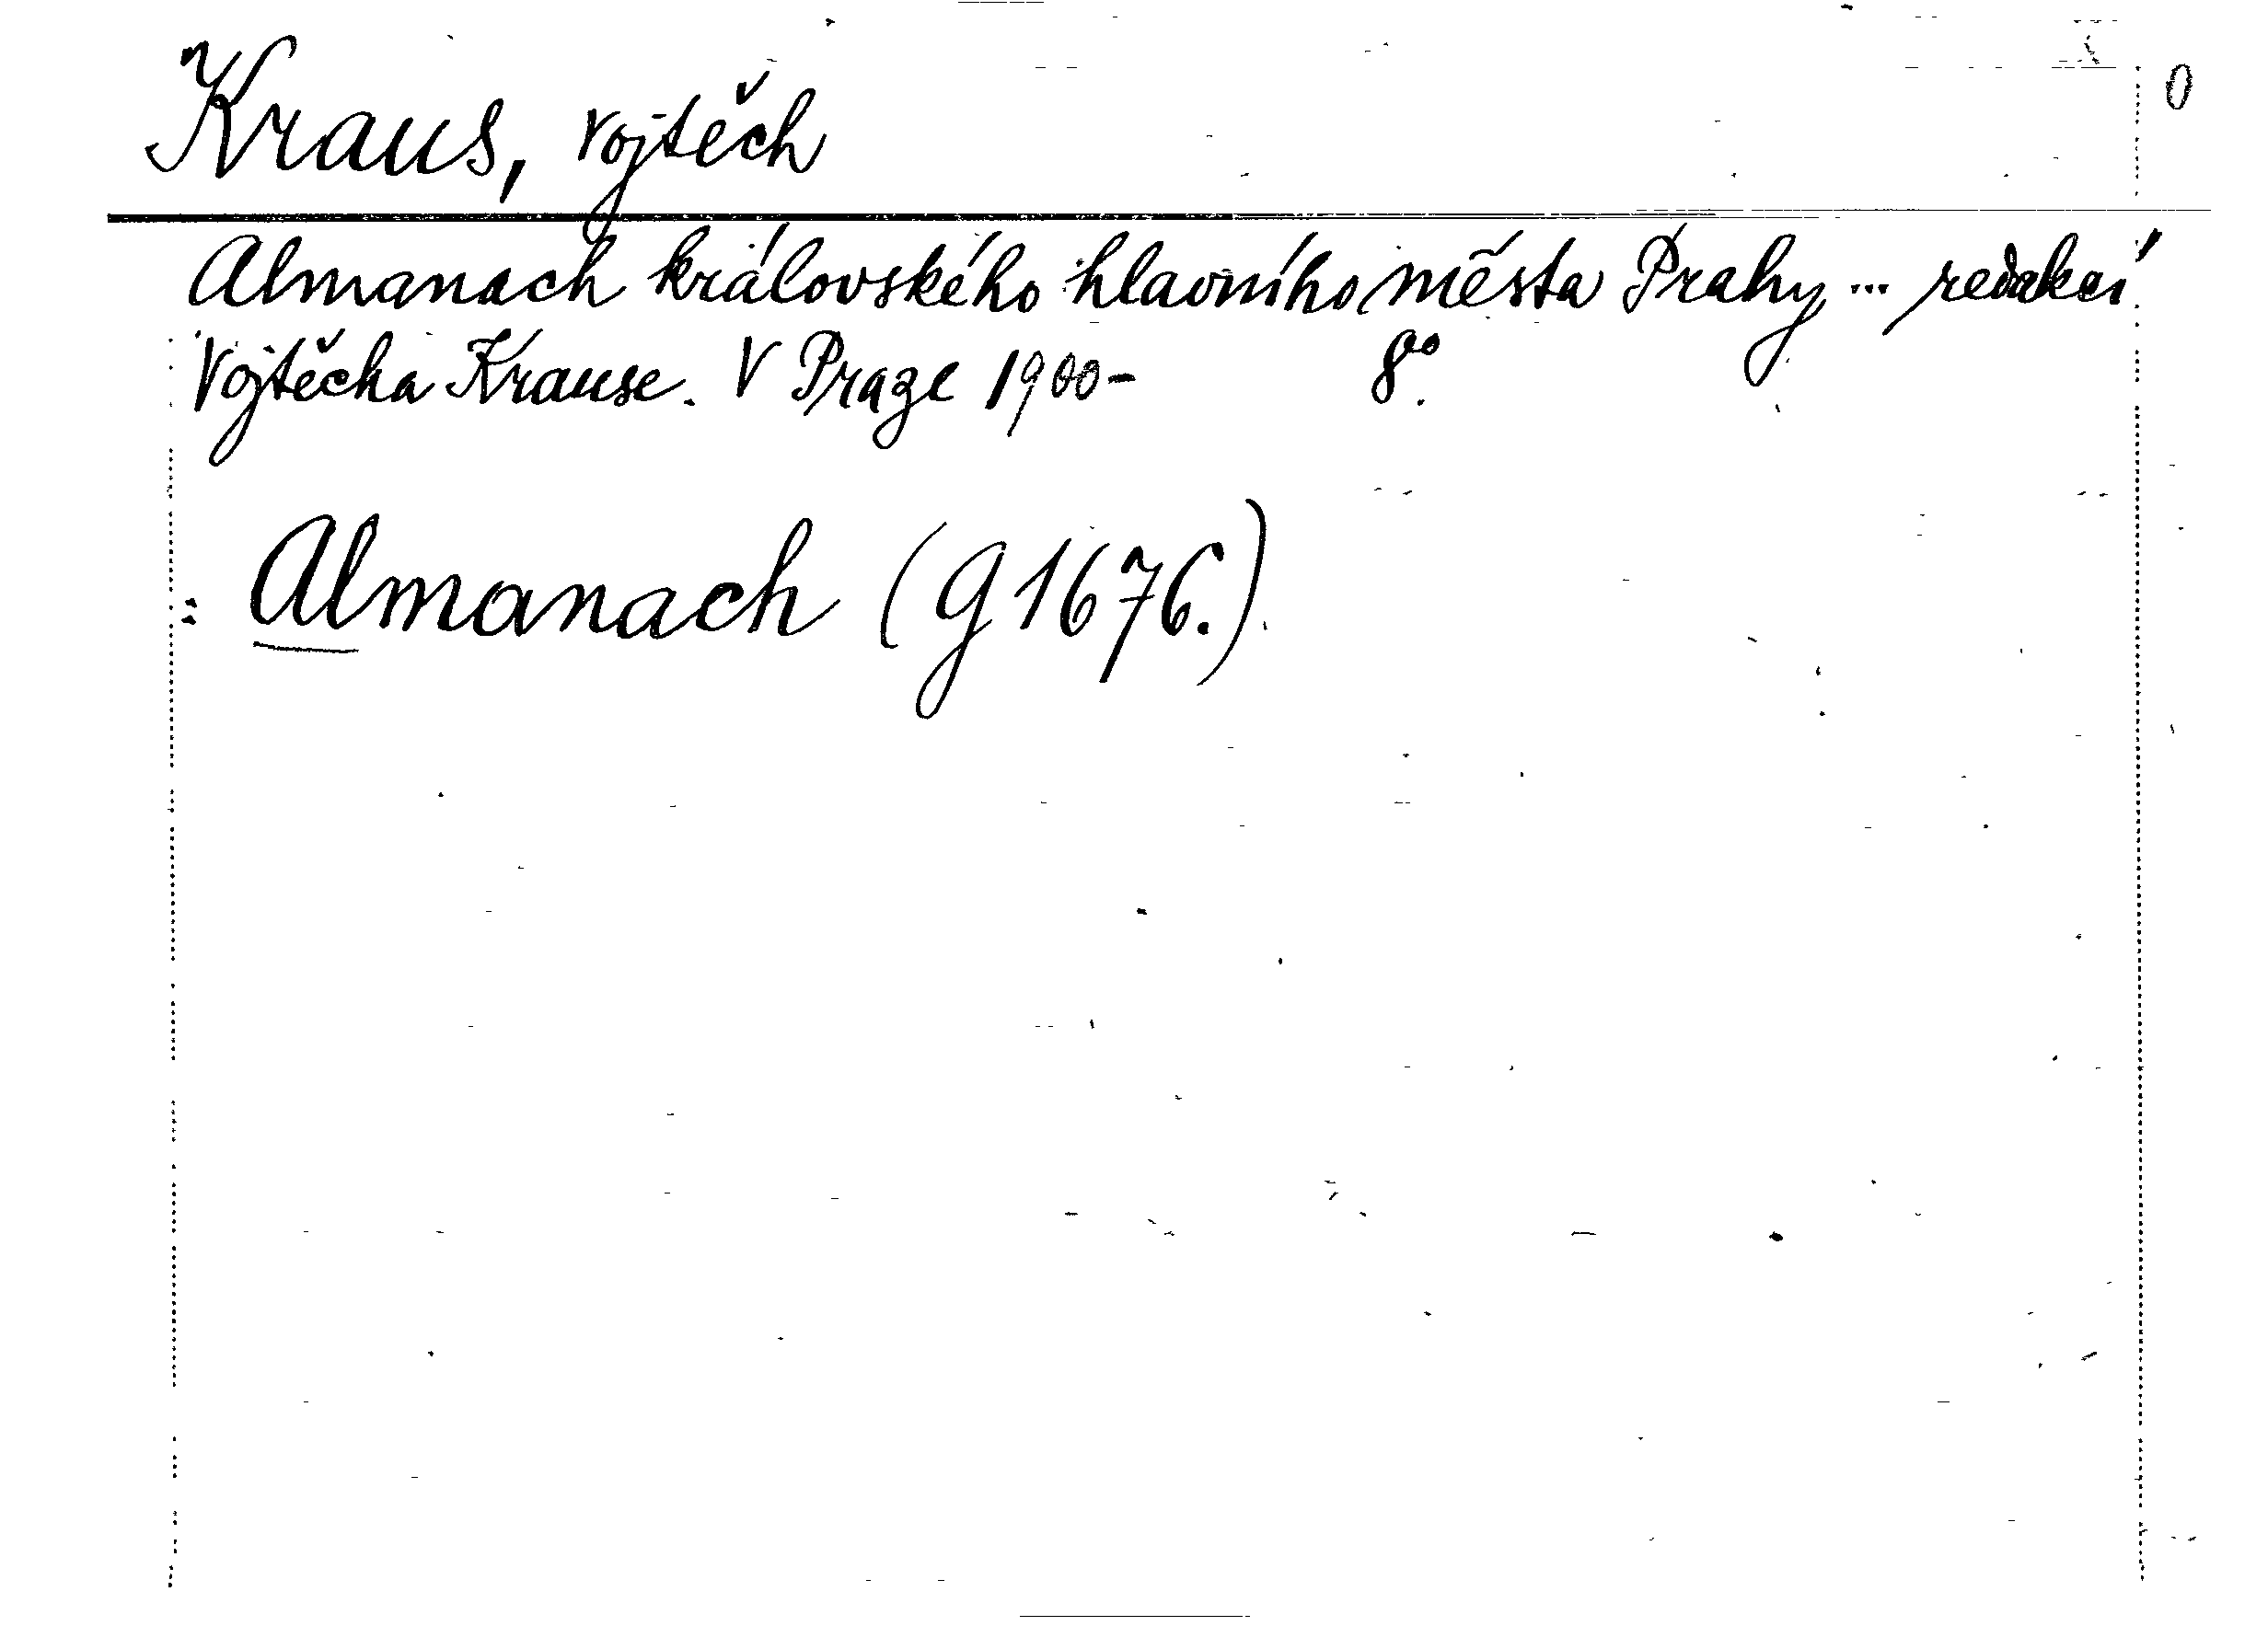 0
Kraus, Vojtěch
Almanach královského hlavního města Prahy ... redakcí
Vojtěcha Krause. V Praze 1900- 8°.
: Almanach (g 1676.)